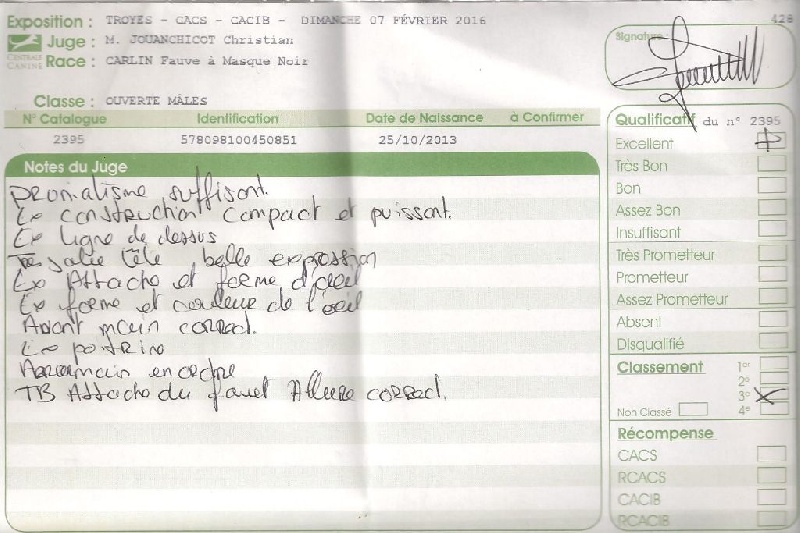 Exposition : TROYES - CACS - CACIB - DIMANCHE 07 FÉVRIER 2016
428
CENTRALE CANINE
Juge : M. JOUANCHICOT Christian
Race : CARLIN Fauve à Masque Noir
Signature
Classe : OUVERTE MÂLES
N° Catalogue Identification Date de Naissance à Confirmer
2395 578098100450851 25/10/2013
Notes du Juge
suffisant.
Ex construction compact et puissant.
Ex ligne de dessus
Tres jolie tête, belle expression
Ex Attache et forme d'oreil
Ex forme et couleur de l'oeil
Avant main correct.
Ex poitrine
Arriere main en ordre
TB Attache du fouet Allure correct.
Qualificatif du n° 2395
Excellent
Très Bon
Bon
Assez Bon
Insuffisant
Très Prometteur
Prometteur
Assez Prometteur
Absent
Disqualifié
Classement 1er
2e
3e
Non Classé 4e
Récompense
CACS
RCACS
CACIB
RCACIB